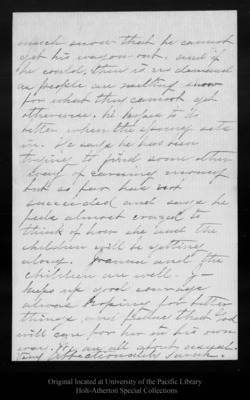 much snow that he cannot
get his wagon out. and if
he could, there is no demand
as people are melting snow
for what they cannot get
otherwise. he hopes to do
better when the spring sets
in. He says he has been
trying to find some other
way of earning money
but so far have not
succeeded and says he
feels almost crazed to
think of how she and the
children will be getting
along. Joanna and the
children are well. J—
keeps up good courage
always hoping for better
things and feeling that God
will care for her in his own
way. We are all about as usual.
Affectionately Sarah.
Original located at University of the Pacific Library
Holt-Atherton Special Collections